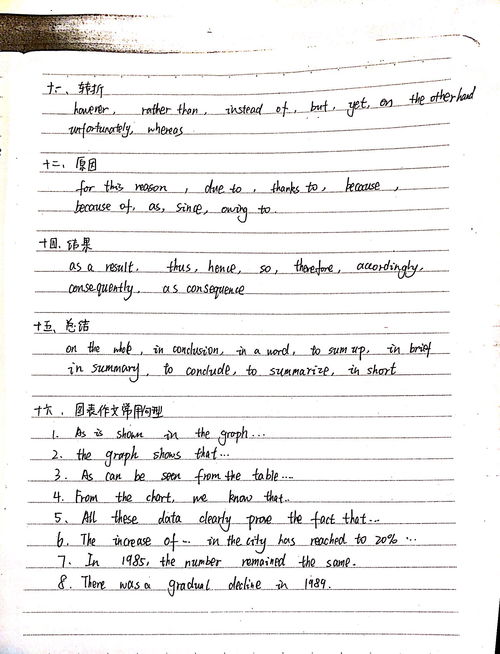 十一、转折
however, rather than, instead of, but, yet, on the other hand
unfortunately, whereas
十二、原因
for this reason, due to, thanks to, because,
because of, as, since, owing to.
十四、结果
as a result, thus, hence, so, therefore, accordingly,
consequently, as consequence
十五、总结
on the whole, in conclusion, in a word, to sum up, in brief
in summary, to conclude, to summarize, in short
十六、图表作文常用句型
1. As is shown in the graph...
2. the graph shows that...
3. As can be seen from the table....
4. From the chart, we know that..
5. All these data clearly prove the fact that...
6. The increase of ... in the city has reached to 20% ...
7. In 1985, the number remained the same.
8. There was a gradual decline in 1989.